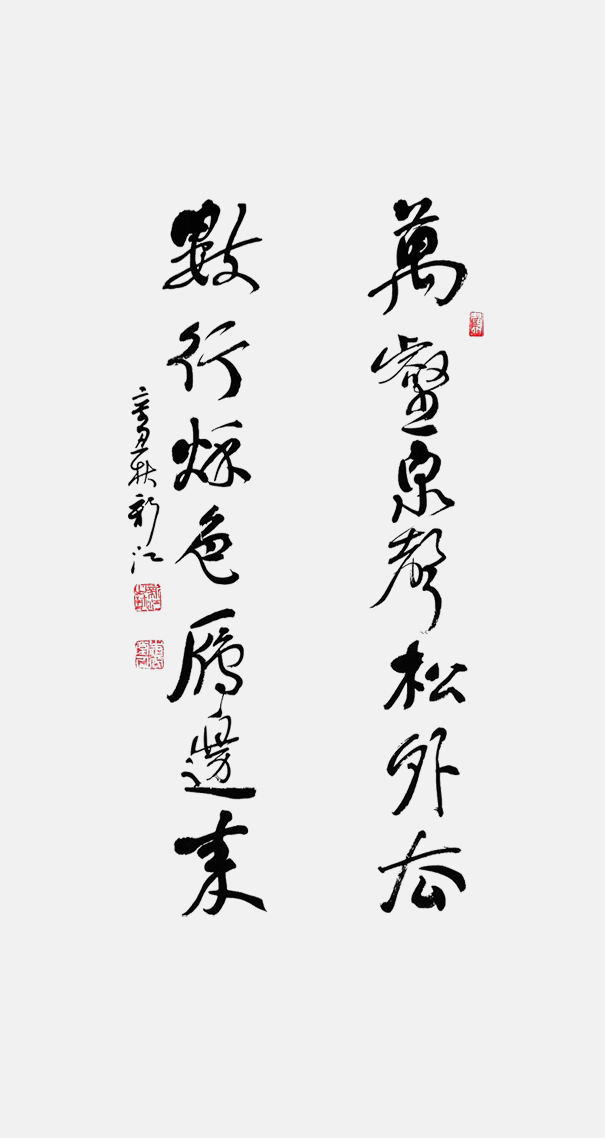 萬壑泉聲松外去
數行秌色鴈邊來
辛丑秋新江